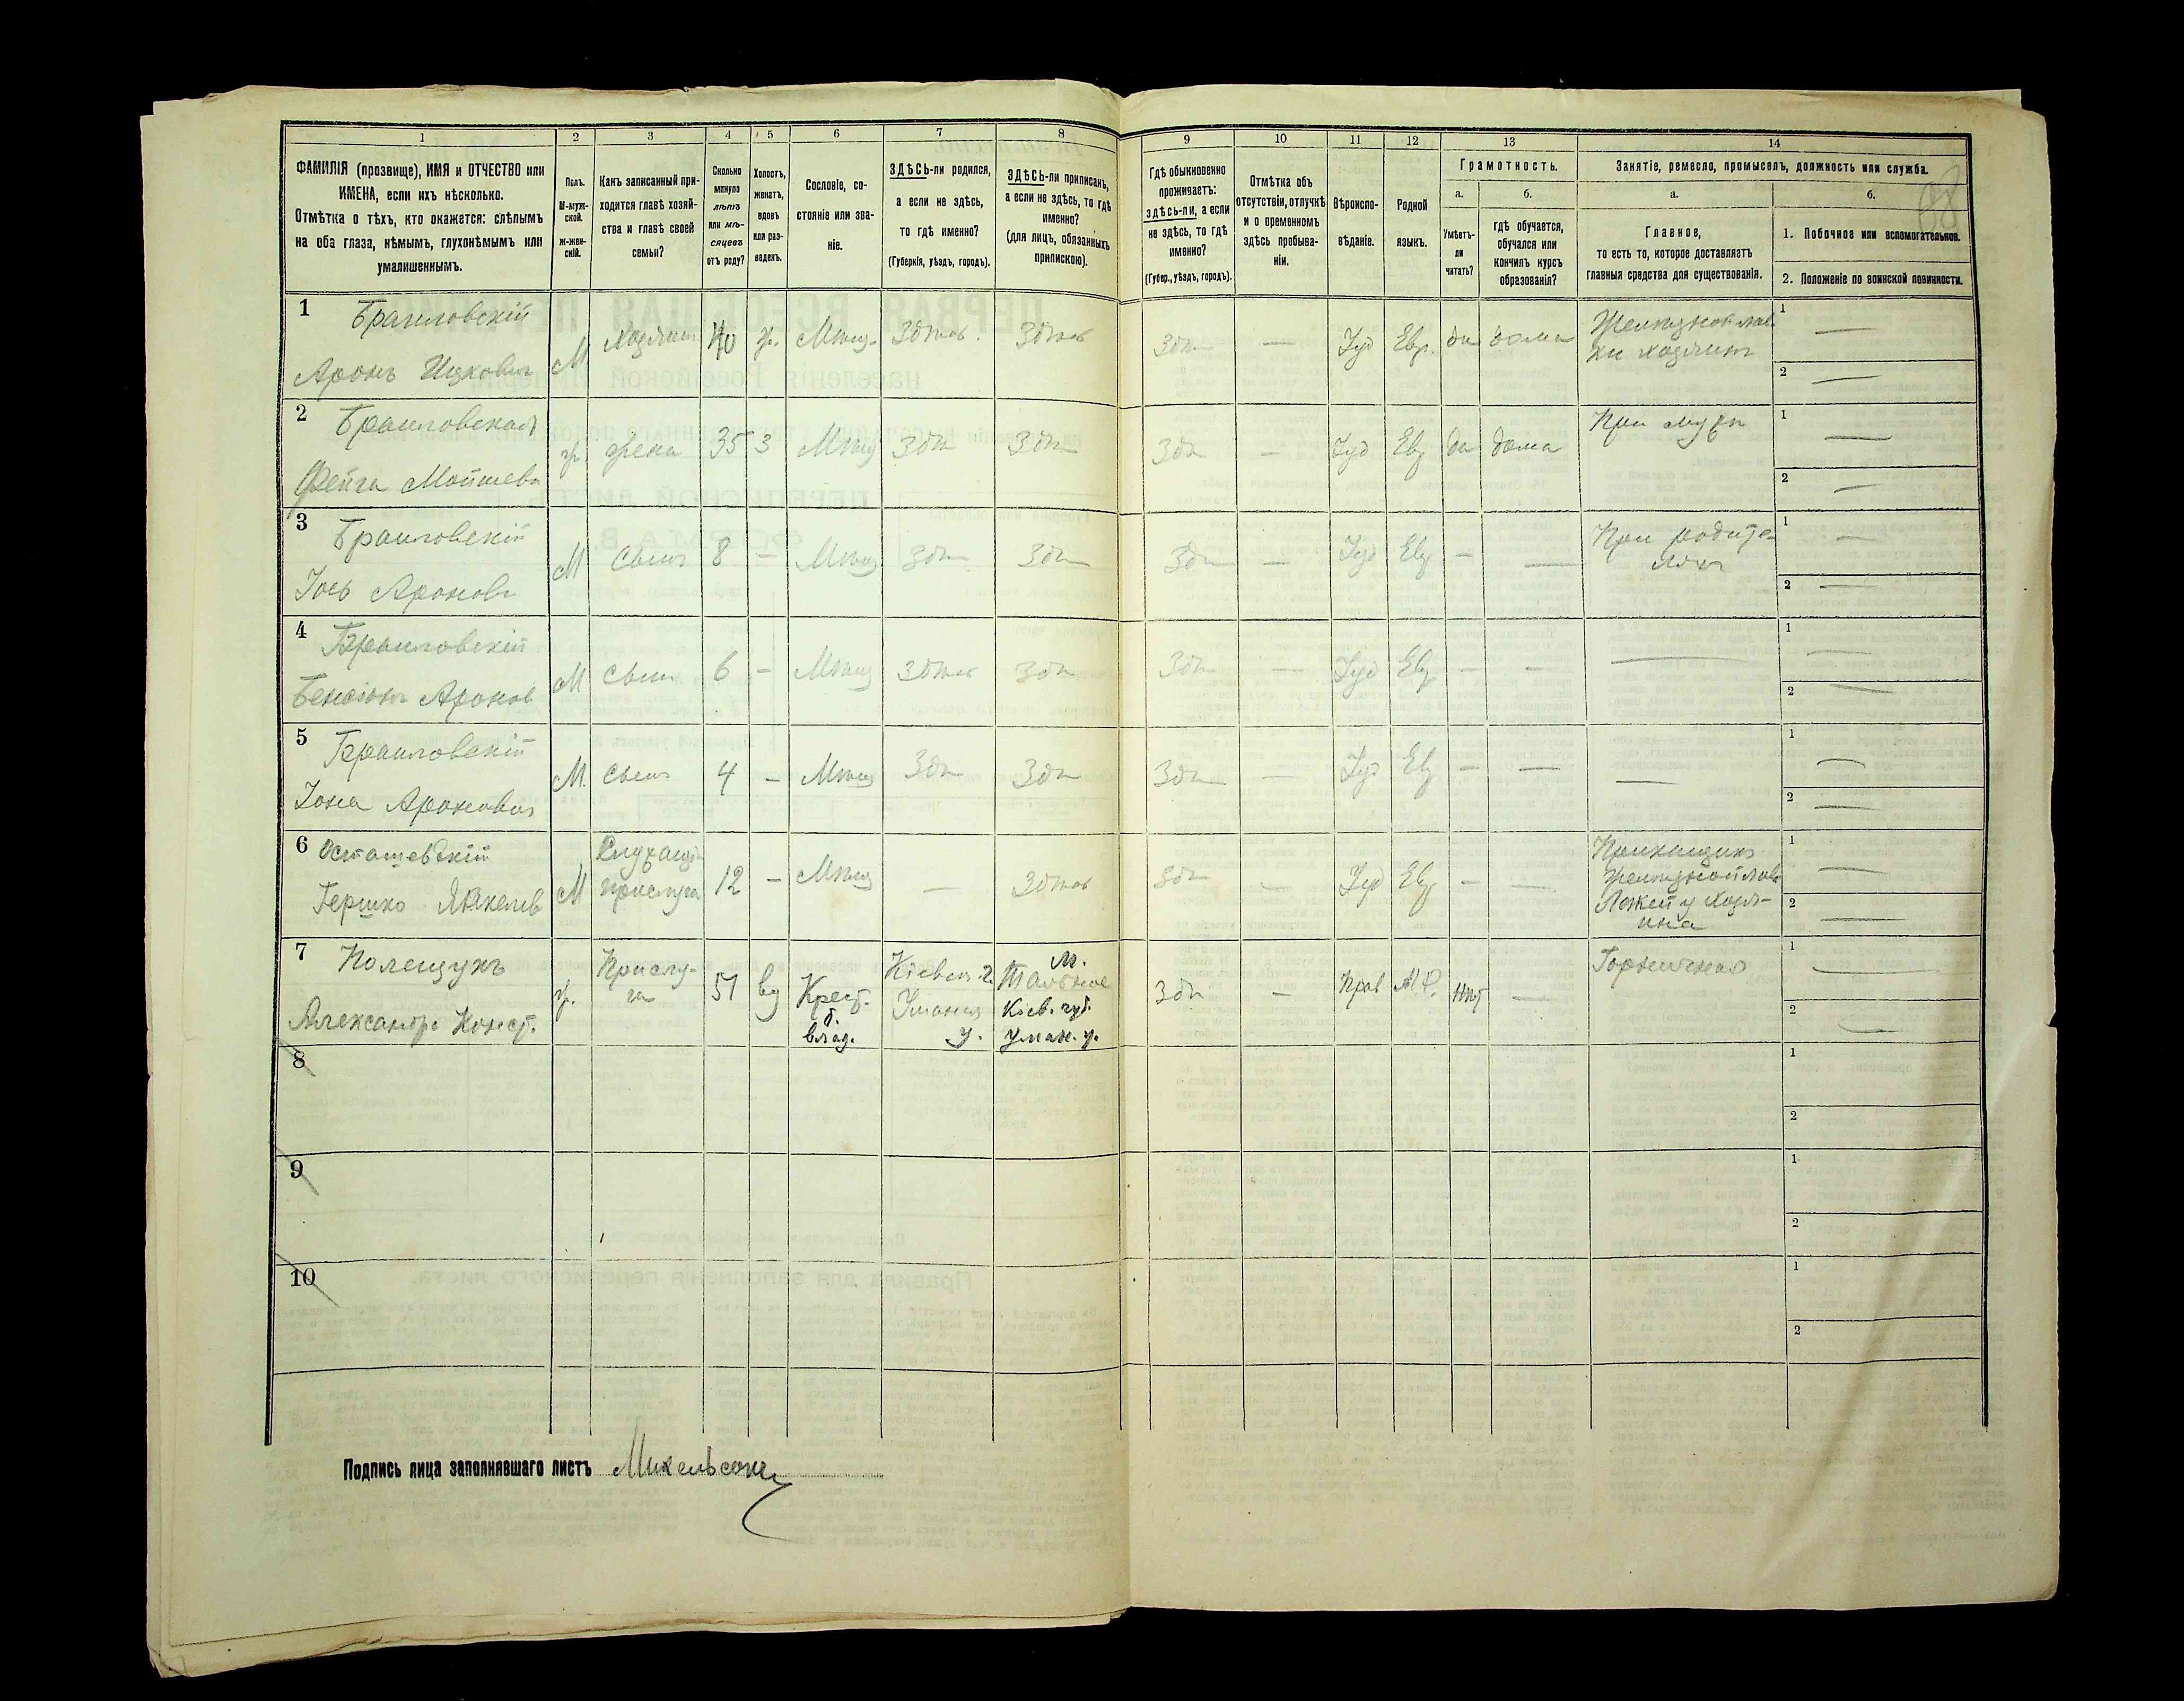 1 2 3 4 5 6 7 8 9 10 11 12 13 14
ФАМИЛІЯ (прозвище), ИМЯ и ОТЧЕСТВО или
ИМЕНА, если ихъ нѣсколько.
Отмѣтка о тѣхъ, кто окажется: слѣпымъ
на оба глаза, нѣмымъ, глухонѣмымъ или
умалишеннымъ.
Полъ.
М-муж-
ской.
ж-жен-
скій.
Какъ записанный при-
ходится главѣ хозяй-
ства и главѣ своей
семьи?
Сколько
минуло
лѣтъ
или мѣ-
сяцевъ
отъ роду?
Холостъ,
женатъ,
вдовъ
или раз-
веденъ.
Сословіе, со-
стояніе или зва-
ніе.
ЗДѢСЬ-ли родился,
а если не здѣсь,
то гдѣ именно?
(Губернія, уѣздъ, городъ).
ЗДѢСЬ-ли приписанъ,
а если не здѣсь, то гдѣ
именно?
(для лицъ, обязанныхъ
припискою).
Гдѣ обыкновенно
проживаетъ:
здѣсь-ли, а если
не здѣсь, то гдѣ
именно?
(Губер., уѣздъ, городъ).
Отмѣтка объ
отсутствіи, отлучкѣ
и о временномъ
здѣсь пребыва-
ніи.
Вѣроиспо-
вѣданіе.
Родной
языкъ.
Грамотность.
а.
Умѣетъ-
ли
читать?
б.
гдѣ обучается,
обучался или
кончилъ курсъ
образованія?
Занятіе, ремесло, промыселъ, должность или служба.
а.
Главное,
то есть то, которое доставляетъ
главныя средства для существованія.
б.
1. Побочное или вспомогательное.
2. Положеніе по воинской повинности.
1 Браиловскій
Аронъ Ицковичъ
М Хозяинъ 40 ж. Мѣщ. Здѣсь Здѣсь Здѣ — Іуд Евр. да дома
Желѣзной лав
ки хозяинъ
1 —
2 —
2 Браиловская
Фейга Мойшева
ж жена 35 З Мѣщ Здѣ Здѣ Здѣ — Іуд Евр да дома
При мужѣ
1 —
2 —
3 Браиловскій
Іось Ароновъ
М Сынъ 8 — Мѣщ Здѣ Здѣ Здѣ — Іуд Евр — —
При родите
ляхъ
1 —
2 —
4 Браиловскій
Бенсіонъ Аронов
М Сынъ 6 — Мѣщ Здѣсь Здѣ Здѣ — Іуд Евр — — —
1 —
2 —
5 Браиловскій
Іона Ароновичъ
М. Сынъ 4 — Мѣщ Здѣ Здѣ Здѣ — Іуд Евр — — —
1 —
2 —
6 Осташевскій
Гершко Янкелев
М
прислуга
12 — Мѣщ — Здѣсь Здѣ — Іуд Евр — —
Прикащикъ
желѣзной лав
1 —
2 —
7 Полещукъ
Александра Конст.
ж.
Прислу-
га
51 вд
Крест.
б.
влад.
Кіевск. г.
Уманск
у.
м.
Тальное
Кіев. губ.
Уман. у.
Здѣ — Прав М.Р. нѣт —
Горничная
1 —
2 —
8
1
2
9
1
2
10
1
2
Подпись лица заполнявшаго листъ Михельсонъ